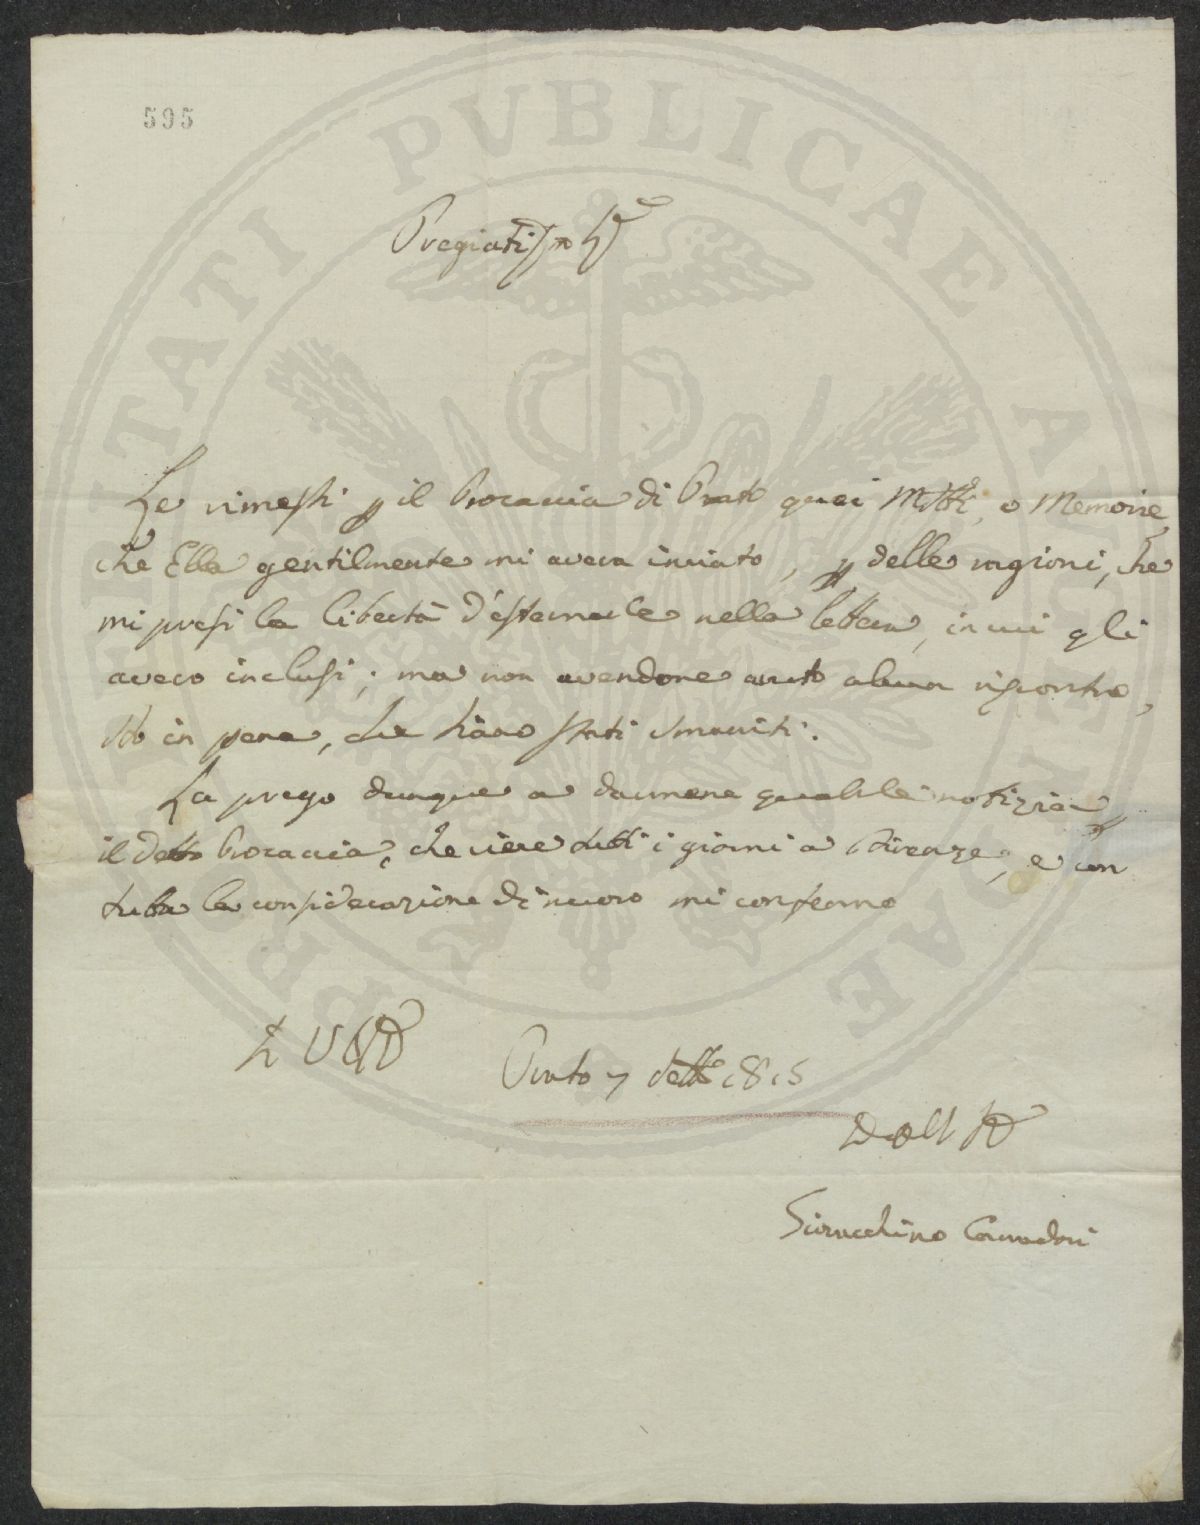 595
Pregiatiss.mo Sig.re
Le rimessi p il Procaccia di Prato quei Mss.tti, o Memorie,
che Ella gentilmente mi aveva inviato, p delle ragioni, che
mi presi la libertà d'esternarle nella lettera, in cui gli
avevo inclusi; ma non avendone avuto alcun riscontro,
sto in pena, che siano stati smarriti.
La prego dunque a darmene qualche notizia p
il detto Procaccia, che viene tutti i giorni a Firenze, e con
tutta la considerazione di nuovo mi confermo
Prato 7 Sett.e 1815
Giovacchino Carradori
PROSPERITATI PUBLICAE AUGENDAE